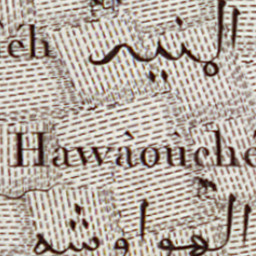 éh
المنيه
Hawâouché
الهواوشه